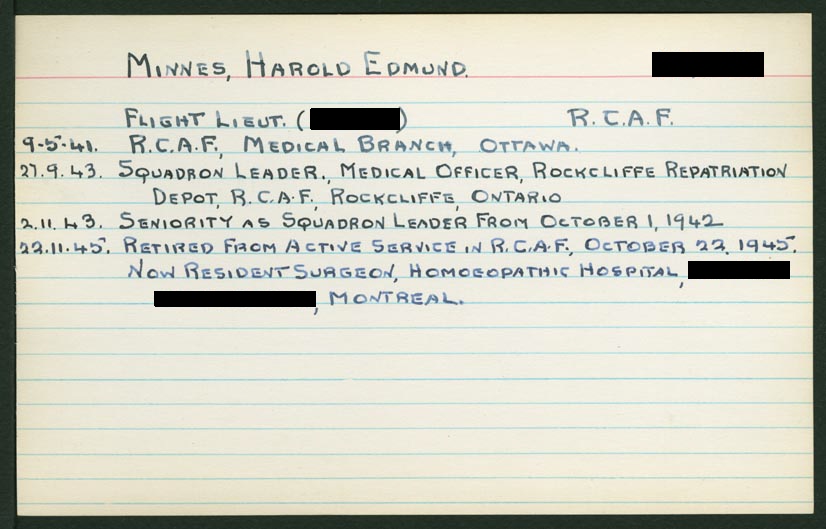 MINNES, HAROLD EDMUND.
FLIGHT LIEUT. ( ) R.C.A.F.
9-5-41. R.C.A.F., MEDICAL BRANCH, OTTAWA.
27.9.43. SQUADRON LEADER., MEDICAL OFFICER, ROCKCLIFFE REPATRIATION
DEPOT, R.C.A.F., ROCKCLIFFE, ONTARIO
2.11.43. SENIORITY AS SQUADRON LEADER FROM OCTOBER 1, 1942
22.11.45. RETIRED FROM ACTIVE SERVICE IN R.C.A.F., OCTOBER 22, 1945.
NOW RESIDENT SURGEON, HOMOEOPATHIC HOSPITAL,
, MONTREAL.